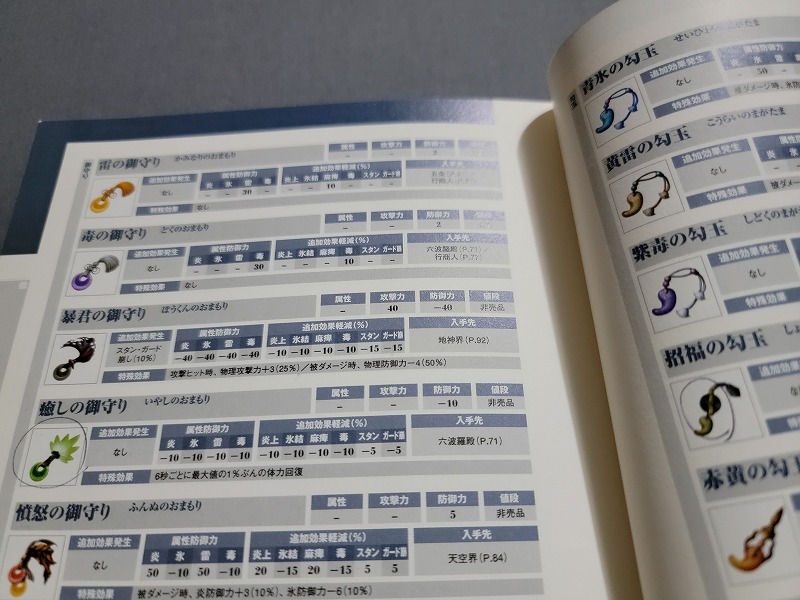 雷の御守り かみなりのおまもり
属性 攻撃力 防御力
－ － 2
追加効果発生 属性防御力 追加効果軽減(%) 入手先
炎 氷 雷 毒 炎上 氷結 麻痺 毒 スタン ガード崩
なし － － 30 － － － 10 － － －
行商人
特殊効果 なし
毒の御守り どくのおまもり
属性 攻撃力 防御力 値段
－ － 2
追加効果発生 属性防御力 追加効果軽減(%) 入手先
炎 氷 雷 毒 炎上 氷結 麻痺 毒 スタン ガード崩
なし － － － 30 － － － 10 － －
六波羅殿(P.71)／
行商人(P.77)
特殊効果 なし
暴君の御守り ぼうくんのおまもり
属性 攻撃力 防御力 値段
－ 40 －40 非売品
追加効果発生 属性防御力 追加効果軽減(%) 入手先
炎 氷 雷 毒 炎上 氷結 麻痺 毒 スタン ガード崩
スタン・ガード
崩し(10%)
－40 －40 －40 －40 －10 －10 －10 －10 －15 －15
地神界(P.92)
特殊効果 攻撃ヒット時、物理攻撃力＋3(25%)／被ダメージ時、物理防御力－4(50%)
癒しの御守り いやしのおまもり
属性 攻撃力 防御力 値段
－ － －10 非売品
追加効果発生 属性防御力 追加効果軽減(%) 入手先
炎 氷 雷 毒 炎上 氷結 麻痺 毒 スタン ガード崩
なし －10 －10 －10 －10 －10 －10 －10 －10 －5 －5
六波羅殿(P.71)
特殊効果 6秒ごとに最大値の1%ぶんの体力回復
憤怒の御守り ふんぬのおまもり
属性 攻撃力 防御力 値段
－ － 5 非売品
追加効果発生 属性防御力 追加効果軽減(%) 入手先
炎 氷 雷 毒 炎上 氷結 麻痺 毒 スタン ガード崩
なし 50 －10 50 －10 20 －15 20 －15 5 5
天空界(P.84)
特殊効果 被ダメージ時、炎防御力＋3(10%)、氷防御力－6(10%)
青氷の勾玉
追加効果発生
炎 氷 雷
なし － 50 －
特殊効果 被ダメージ時、氷防
黄雷の勾玉 こうらいのまがたま
追加効果発生
炎 氷
なし － －
特殊効果 被ダメージ時
紫毒の勾玉 しどくのまがたま
追加効果発生
なし
特殊効果
招福の勾玉
追加効果発生
なし
特殊効果
赤黄の勾玉
追加効